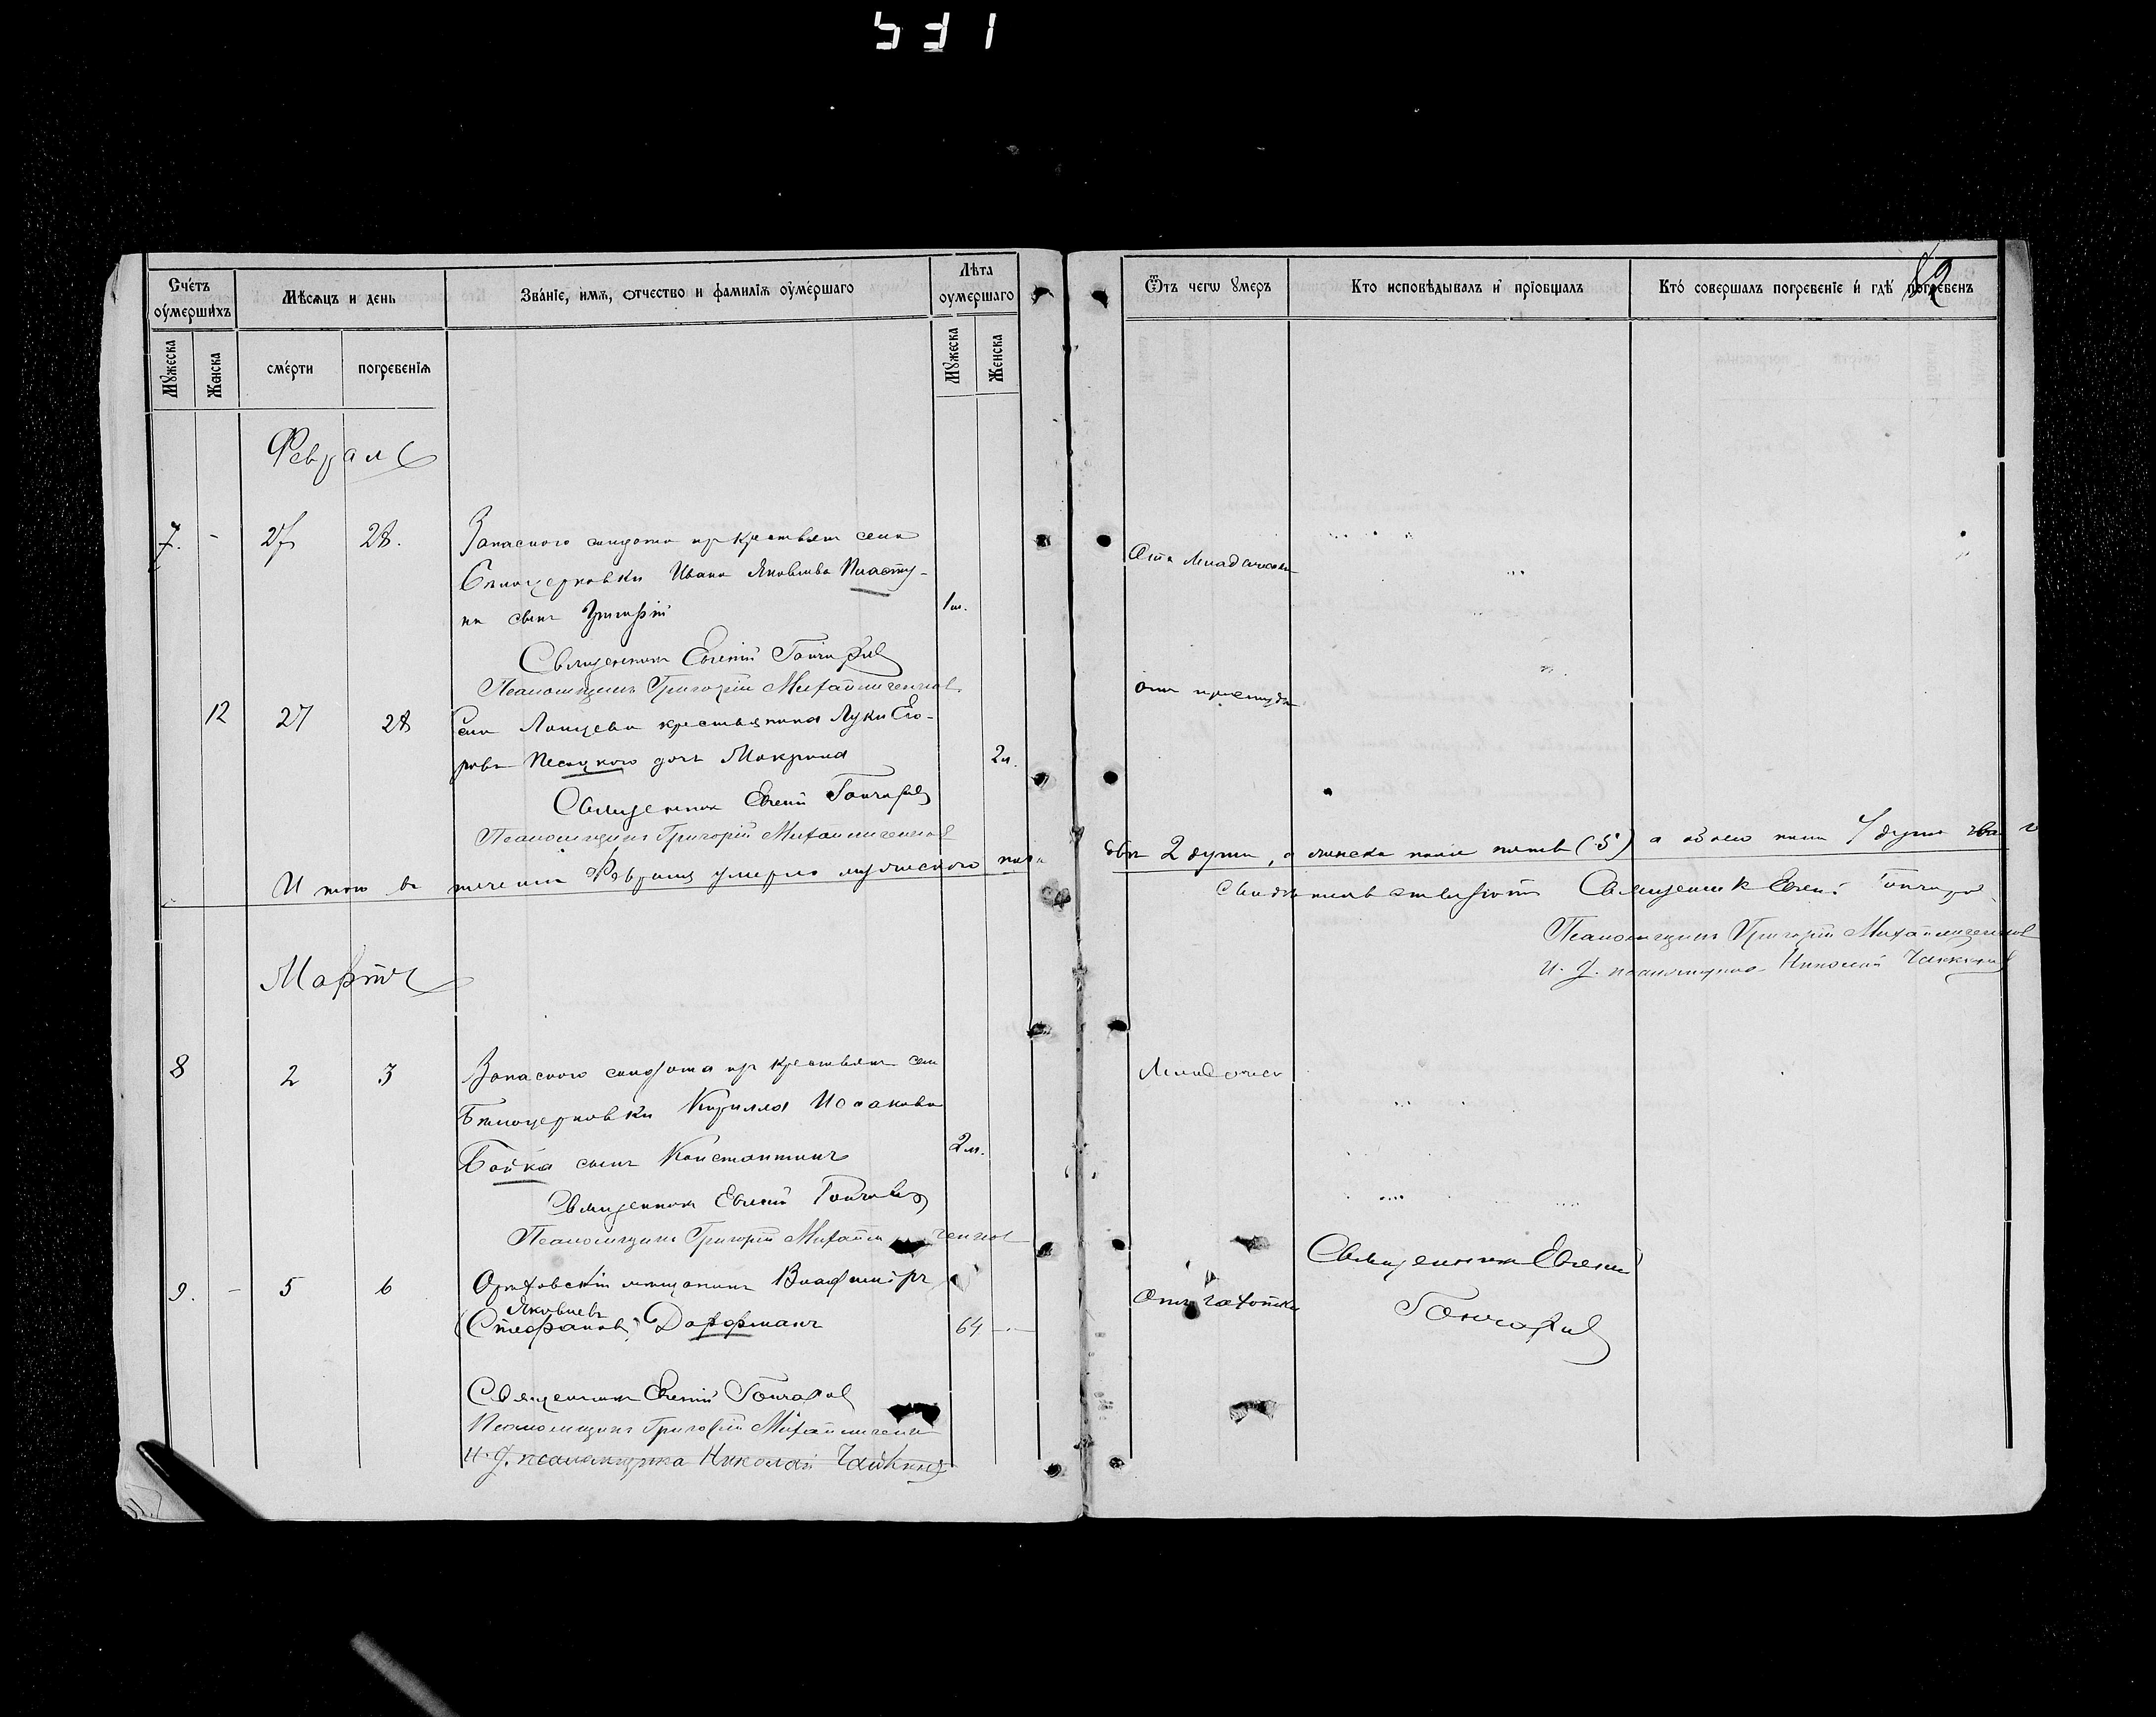 531
82
Счётъ оумершихъ
Мѣсяцъ и день
Званіе, имя, отчество и фамилія оумершаго
Лѣта оумершаго
Ѿтъ чегѡ оумеръ
Кто исповѣдывалъ и пріобщалъ
Кто совершалъ погребеніе и гдѣ погребенъ
Мужеска
Женска
смерти
погребенія
Мужеска
Женска
Февраль
7. - 27 28. Запаснаго солдата изъ крестьянъ села
Бѣлоцерковки Ивана Яковлева Пласту-
на сынъ Григорій 1 м.
Отъ младенческ
Священникъ Евгеній Гончаровъ
Псаломщикъ Григорій Михайличенков
12 27 28 Села Попцева крестьянина Луки Его-
рова Песоцкого дочь Макрина 2 м.
отъ простуды
Священникъ Евгеній Гончаровъ
Псаломщикъ Григорій Михайличенков
Итого въ теченіи Февраля умерло мужескаго пола
2 души, а женска пола пять (5) а обоего пола 7 душъ
свидѣтельствуютъ Священник Евгеній Гончаров
Псаломщикъ Григорій Михайличенков
И. д. псаломщика Николай Чайкинъ
Мартъ
8 2 3 Запаснаго солдата изъ крестьянъ села
Бѣлоцерковки Кирилла Исаакова
Бойка сынъ Константинъ 2 м.
Младенческ
Священникъ Евгеній Гончаровъ
Псаломщикъ Григорій Михайличенков
9. - 5 6 Орѣховскій мѣщанинъ Владиміръ
Яковлевъ
(Стефановъ) Дорфманъ 64 -
Отъ чахотки
Священникъ Евгеній
Гончаровъ
Священникъ Евгеній Гончаровъ
Псаломщикъ Григорій Михайличенк
И. д. псаломщика Николай Чайкинъ